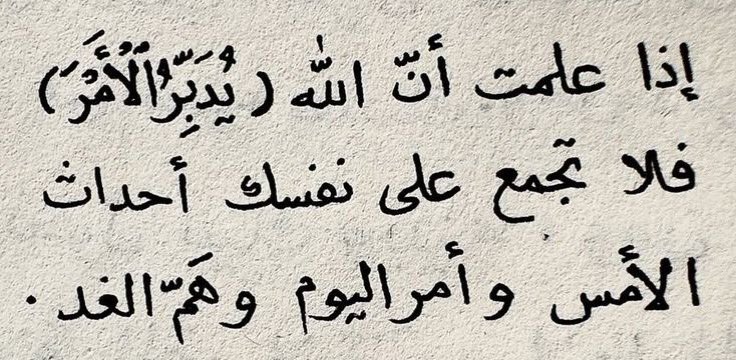 إذا علمت أنّ الله (يُدَبِّرُ ٱلْأَمْرَ)
فلا تجمع على نفسك أحداث
الأمس وأمر اليوم وهَمّ الغد.